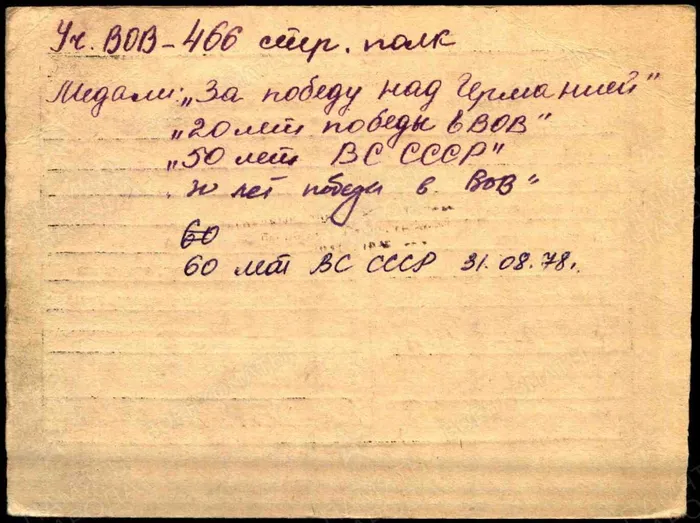 Уч. ВОВ - 466 стр. полк
Медали: „За победу над Германией"
„20 лет победы в ВОВ"
„50 лет ВС СССР"
лет победы в ВОВ"
60
60 лет ВС СССР 31.08.78.